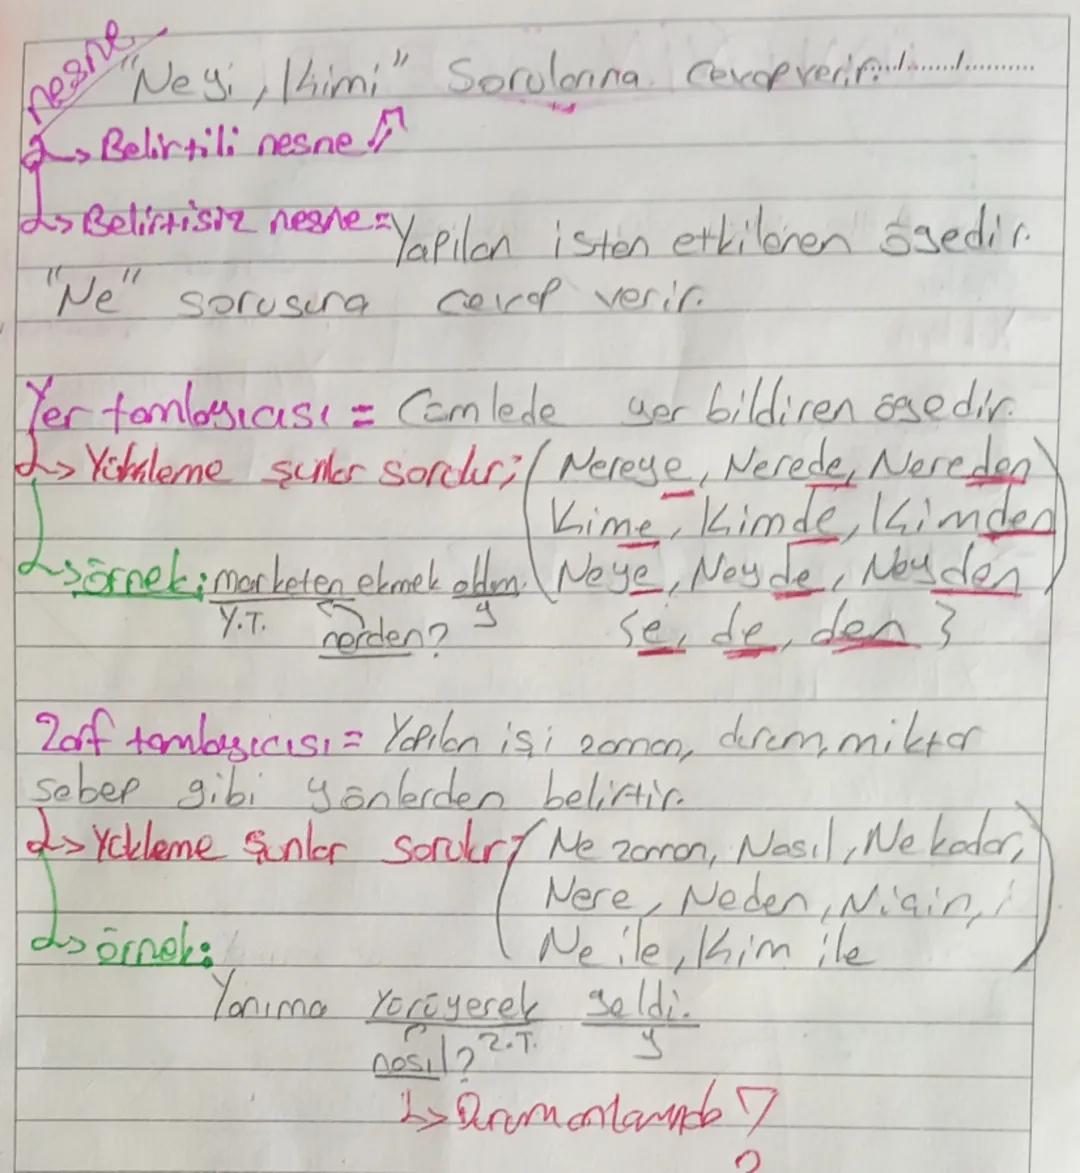 nesne
"Neyi, Kimi" Sorularına cevap verir.
↳ Belirtili nesne
↳ Belirtisiz nesne = Yapılan işten etkilenen ögedir.
"Ne" sorusuna cevap verir.
Yer tamlayıcısı = Cümlede yer bildiren ögedir.
↳ Yükleme şunlar sorulur; (Nereye, Nerede, Nereden
Kime, Kimde, Kimden
↳ örnek; marketen ekmek aldım. Neye, Neyde, Neyden)
Y.T. nerden? y {e, de, den}
Zarf tamlayıcısı = Yapılan işi zaman, durum, miktar
sebep gibi yönlerden belirtir.
↳ Yükleme şunlar sorulur; (Ne zaman, Nasıl, Ne kadar,
Nere, Neden, Niçin,
↳ örnek: Ne ile, Kim ile)
Yanıma Yürüyerek geldi.
nasıl? Z.T. y
↳ Durum